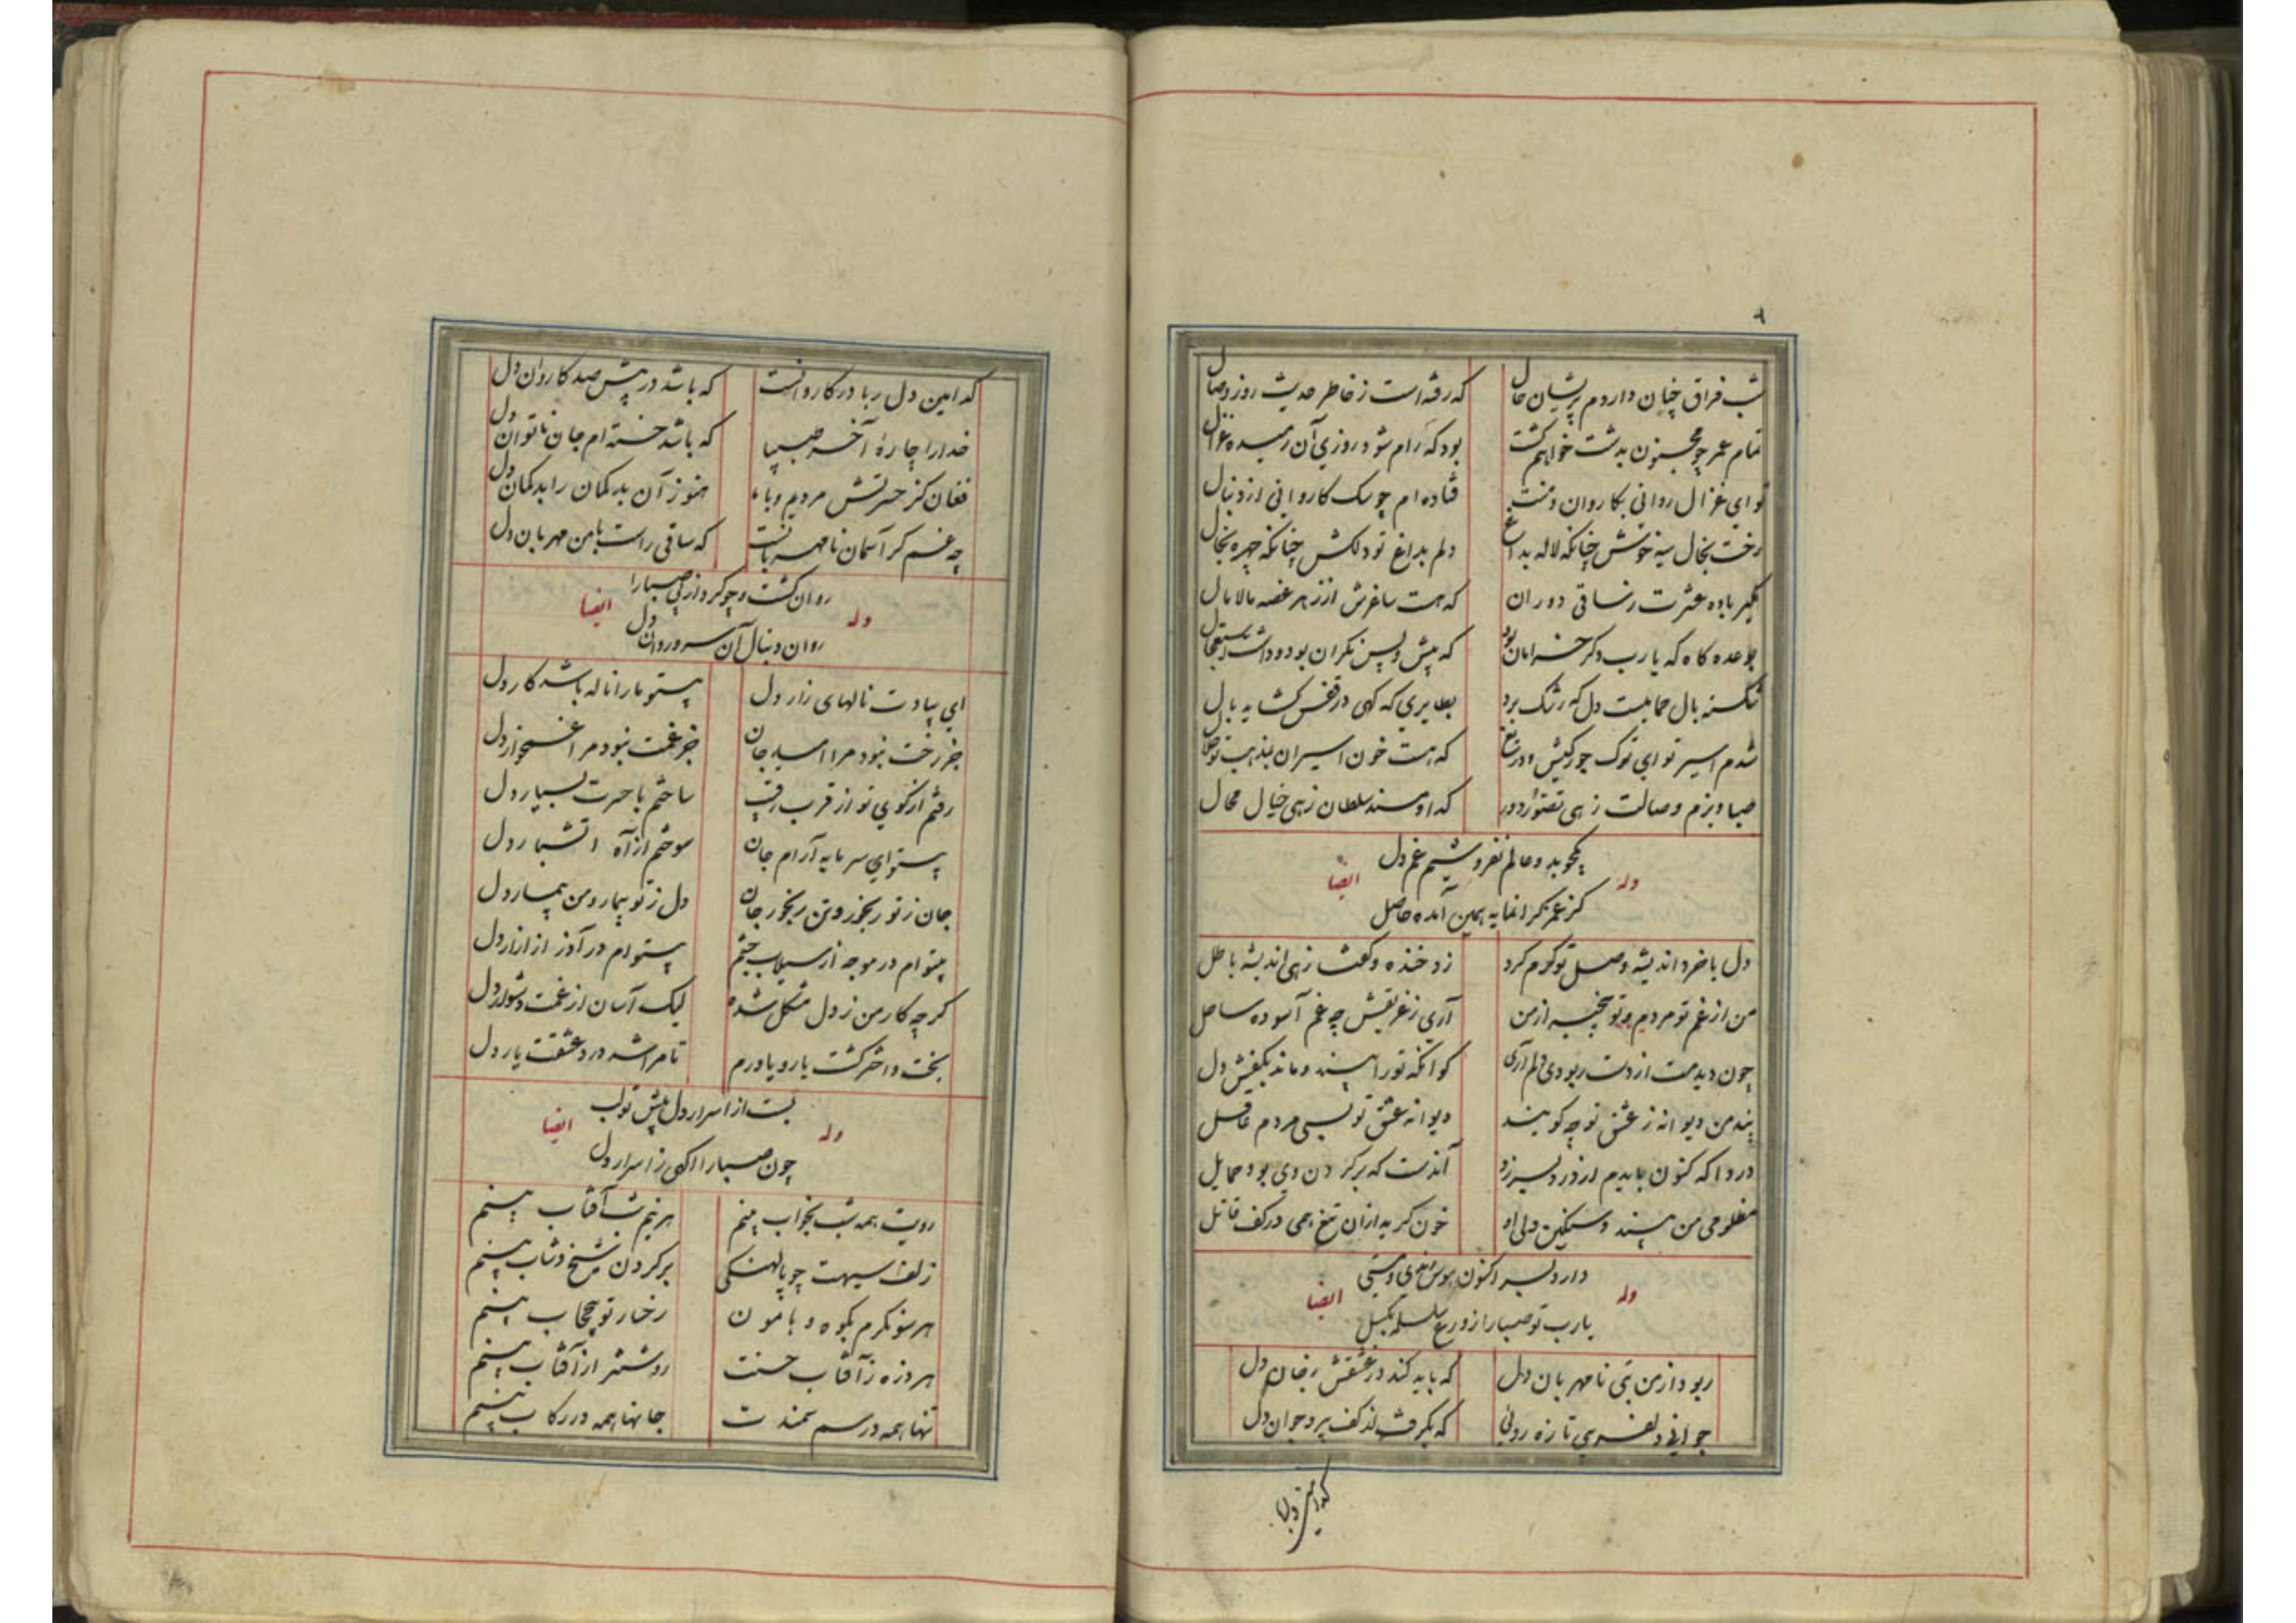 شب فراق چنان داردم پریشان حال
که رفته است ز خاطر حدیث روز وصال
تمام عمر چو مجنون بدشت خواهم کشت
بود که رام شود روزی آن رمیده غزال
تو ای غزال روانی بکاروان و منت
فتاده ام چو سک کاروانی از دنبال
رخت بخال سیه خوش چنانکه لاله بداغ
دلم بداغ تو دلکش چنانکه چهره بخال
مکیر باده عشرت ز ساقی دوران
که هست ساغرش از زهر غصه مالامال
بوعده کاه که یارب دکر خرامان بود
که پیش و پس نکران بود و داشت استعجال
شکسته بال حمامیست دل که رشک برد
بطایری که کهی در قفس کشاید بال
شدم اسیر تو ای ترک جورکیش و دریغ
که هست خون اسیران بمذهبت تو حلال
صبا و بزم وصالت زهی تصور دور
کدا و مسند سلطان زهی خیال محال
وله ایضا
یکجو بدو عالم نفروشیم غم دل
کز عمر کرانمایه همین آمده حاصل
دل با خرد اندیشه وصل تو کرم کرد
زد خنده و کفت زهی اندیشه باطل
من از غم تو مردم و تو بیخبر از من
آری ز غریقش چه غم آسوده ساحل
چون دیدمت از دست ربودی دلم آری
کو آنکه تو را بیند و ماند بکفش دل
پند من دیوانه ز عشق تو چه کویند
دیوانه عشق تو بسی مردم عاقل
دردا که کنون بایدم از دور بسر زد
آندست که بر کردن وی بود حمایل
مظلومی من بیند و سنکین دلی او
خون کرید از آن تیغ همی در کف قاتل
وله ایضا
دارد بسر اکنون هوس رندی و مستی
یارب تو صبا را ز ورع سلسله بکسل
ربود از من بتی نامهربان دل
که باید کند در عشقش ز جان دل
جوانی دلفریبی تازه روئی
که بکرفت از کف پیر و جوان دل
کدامین دلربا
کدامین دل ربا در کاروانست
که باشد در پیش صد کاروان دل
خدا را چاره آخر طبیبا
که باشد خسته ام جان ناتوان دل
فغان کز حسرتش مردیم و با ما
هنوز آن بدکمان را بدکمان دل
چه غم کر آسمان نامهربانست
که ساقی راست با من مهربان دل
وله ایضا
روان کشت و چو کرد از پی صبا را
روان دنبال آن سرو روان دل
ای بیادت نالهای زار دل
بیتو ما را ناله باشد کار دل
جز رخت نبود مرا امید جان
جز غمت نبود مرا غمخوار دل
رفتم از کوی تو از قرب رقیب
ساختم با حسرت بسیار دل
بیتو ای سرمایه آرام جان
سوختم از آه آتشبار دل
جان ز تو رنجور و من رنجور جان
دل ز تو بیمار و من بیمار دل
بیتو ام در موجه از سیلاب چشم
بیتو ام در آذر از آزار دل
کرچه کار من ز دل مشکل شده
لیک آسان از غمت دشوار دل
بخت و اختر کشت یار و یاورم
تا مرا شد درد عشقت یار دل
وله ایضا
بست از اسرار دل پیش تو لب
چون صبا را آکهی ز اسرار دل
رویت همه شب بخواب بینم
هر نیم شب آفتاب بینم
زلف سیهت چو پالهنکی
بر کردن شیخ و شاب بینم
هر سو نکرم بکوه و هامون
رخسار تو بیحجاب بینم
هر ذره ز آفتاب حسنت
روشنتر از آفتاب بینم
تنها همه در سم سمندت
جانها همه در رکاب بینم